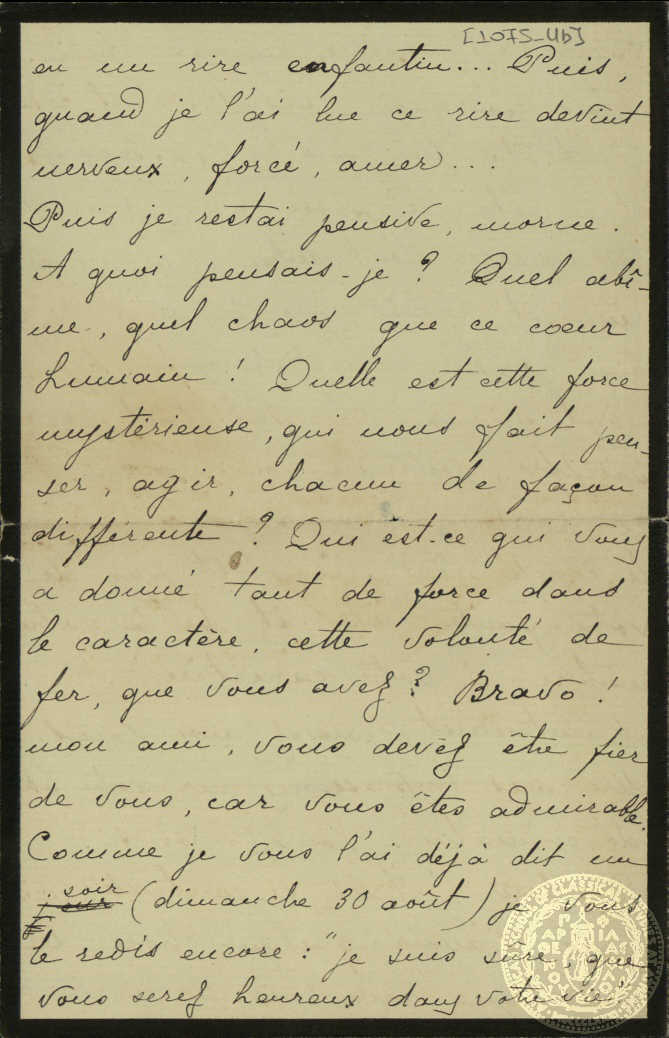 [1075-4b]
en un rire enfantin... Puis,
quand je l'ai lue ce rire devînt
nerveux, forcé, amer...
Puis je restai pensive, morne.
A quoi pensais-je? Quel abî-
me, quel chaos que ce coeur
humain! Quelle est cette force
mystérieuse, qui nous fait pen-
ser, agir, chacun de façon
différente? Qui est-ce qui vous
a donné tant de force dans
le caractère, cette volonté de
fer, que vous avez? Bravo!
mon ami, vous devez être fier
de vous, car vous êtes admirable.
Comme je vous l'ai déjà dit un
soir (dimanche 30 août) je vous
le redis encore: "je suis sûre, que
vous serez heureux dans votre vie"